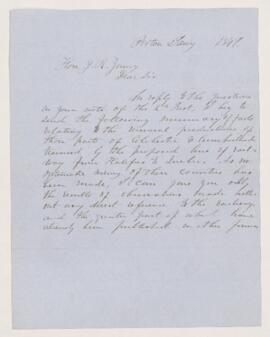 Acton 1847.
Hon. G. R. Young
Dear Sir
In reply to the questions
in your note of the Inst. I beg to
send the following summary of facts
relating to the mineral productions of
those parts of Colchester & Cumberland
traversed by the proposed line of rail-
way from Halifax to Quebec. As no
survey of these counties has
been made, I can give you only
the results of observations made with-
out any direct reference to the railway,
and the greater part of what have
already been published in other forms